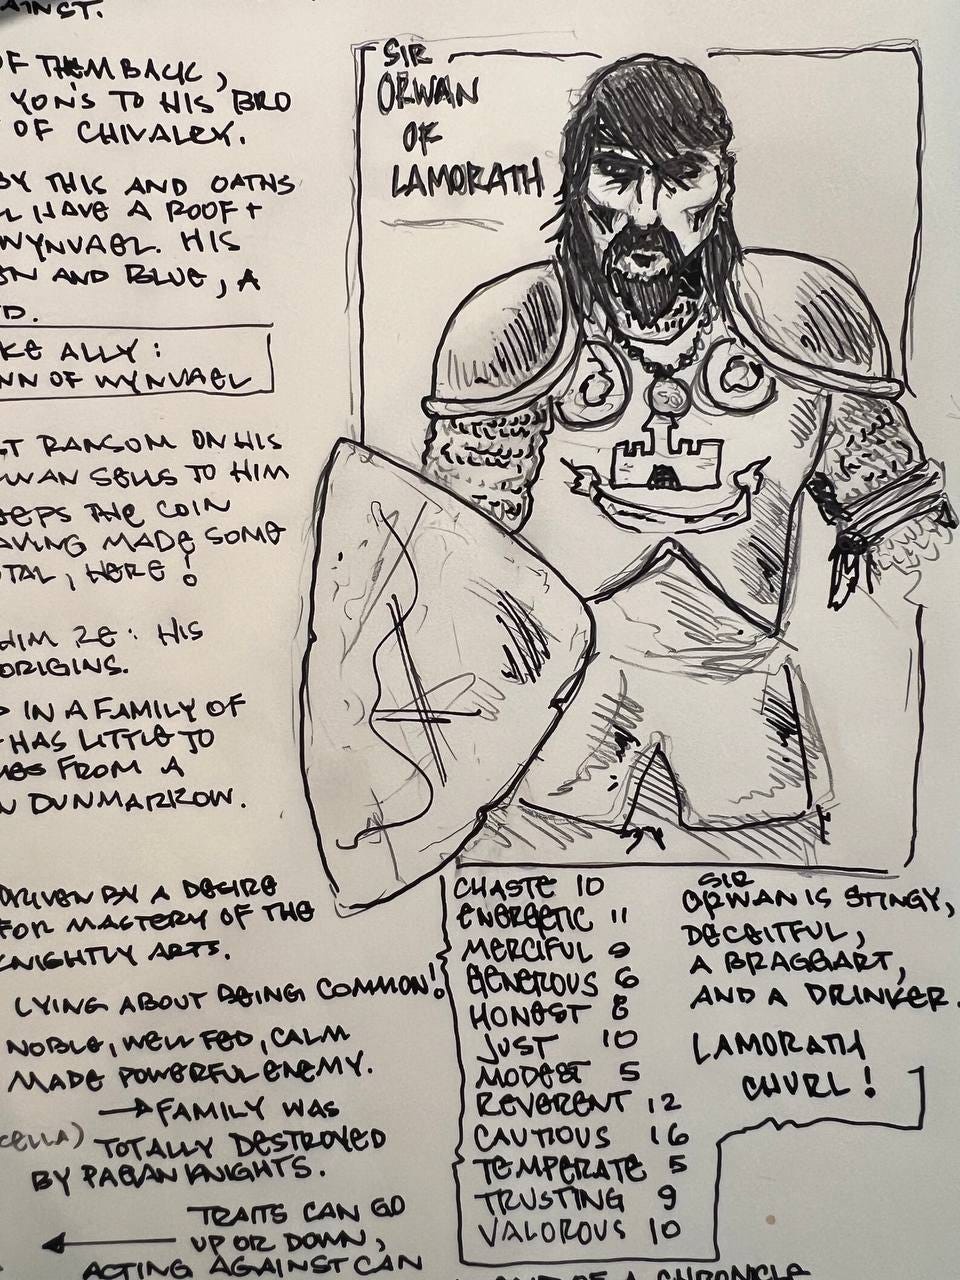 AINST.
OF THEM BACK,
YON'S TO HIS BRO
OF CHIVALRY.
BY THIS AND OATHS
L HAVE A ROOF +
WYNVAEL. HIS
AND BLUE, A
KE ALLY:
NN OF WYNVAEL
ST RANSOM ON HIS
WAN SELLS TO HIM
EEPS THE COIN
AVING MADE SOME
TAL, HERE!
HIM 2E: HIS
ORIGINS.
D IN A FAMILY OF
HAS LITTLE TO
MES FROM A
N DUNMARROW.
DRIVEN BY A DESIRE
FOR MASTERY OF THE
KNIGHTLY ARTS.
LYING ABOUT BEING COMMON!
NOBLE, WELL FED, CALM
MADE POWERFUL ENEMY.
→ FAMILY WAS
CELLA) TOTALLY DESTROYED
BY PAGAN KNIGHTS.
TRAITS CAN GO
UP OR DOWN,
ACTING AGAINST CAN
SIR
ORWAN
OF
LAMORATH
CHASTE 10
ENERGETIC 11
MERCIFUL 9
GENEROUS 6
HONEST 8
JUST 10
MODEST 5
REVERENT 12
CAUTIOUS 16
TEMPERATE 5
TRUSTING 9
VALOROUS 10
SIR
ORWAN IS STINGY,
DECEITFUL,
A BRAGGART,
AND A DRINKER.
LAMORATH
CHURL!
END OF A CHRONICLE